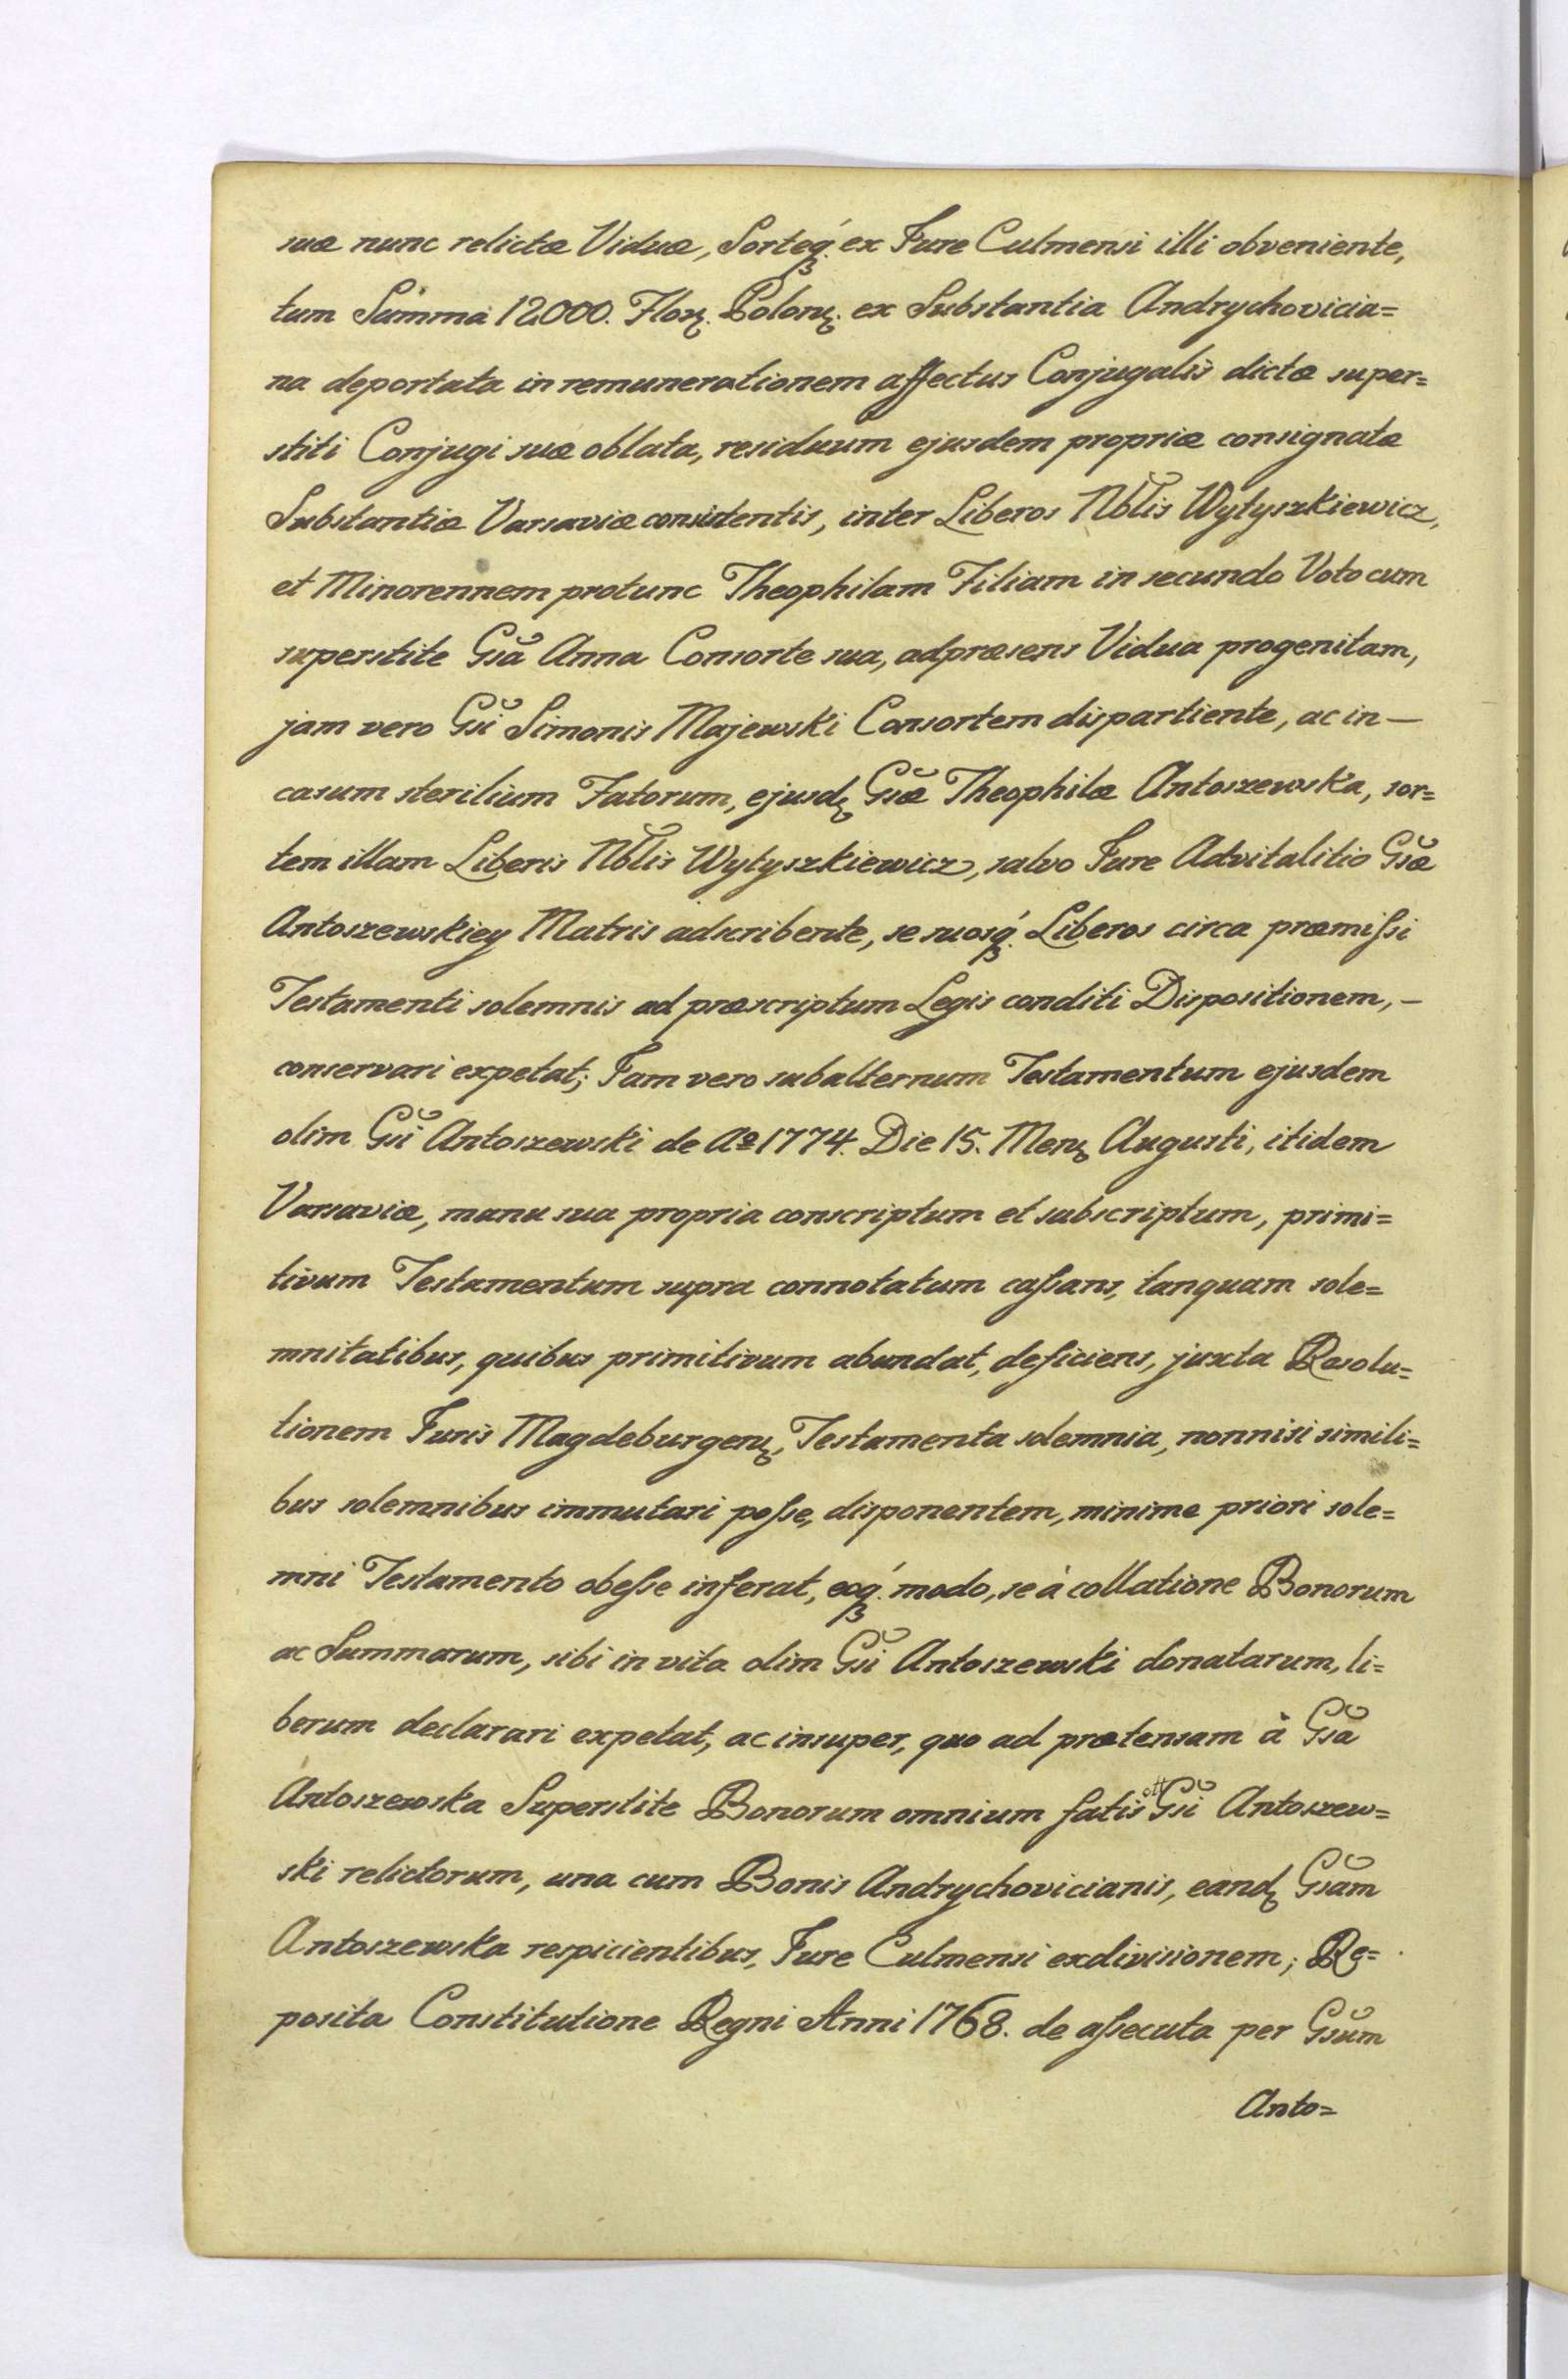 suæ nunc relictæ Viduæ, Sorteq́ꝫ ex Jure Culmensi illi obveniente,
tum Summa 12000. Flor. Polon. ex Substantia Andrychovicia=
na deportata in remunerationem affectus Conjugalis dictæ super=
stiti Conjugi suæ oblata, residuum ejusdem propriæ consignatæ
Substantiæ Varsaviæ consistentis, inter Liberos Nblis Wytyszkiewicz,
et Minorennem protunc Theophilam Filiam in secundo Voto cum
superstite Gsa Anna Consorte sua, adpræsens Vidua progenitam,
jam vero Gsi Simonis Majewski Consortem dispartiente, ac in—
casum sterilium Fatorum, ejusd Gsæ Theophilæ Antoszewska, sor=
tem illam Liberis Nblis Wytyszkiewicz, salvo Jure Advitalitio Gsæ
Antoszewskiey Matris adscribente, se suosq́ꝫ Liberos circa præmiſsi
Testamenti solemnis ad præscriptum Legis conditi Dispositionem,—
conservari expetat; Jam vero subalternum Testamentum ejusdem
olim Gsi Antoszewski de Aº 1774. Die 15. Mens Augusti, itidem
Varsaviæ, manu sua propria conscriptum et subscriptum, primi=
tivum Testamentum supra connotatum caſsans, tanquam sole=
mnitatibus, quibus primitivum abundat, deficiens, juxta Resolu=
tionem Juris Magdeburgens, Testamenta solemnia, nonnisi simili=
bus solemnibus immutari poſse, disponentem, minime priori sole=
mni Testamento obeſse inferat, eoq́ꝫ modo, se à collatione Bonorum
ac Summarum, sibi in vita olim Gsi Antoszewski donatarum, li=
berum declarari expetat, ac insuper, quo ad prætensam à Gsa
Antoszewska Superstite Bonorum omnium fatis ott Gsi Antoszew=
ski relictorum, una cum Bonis Andrychovicianis, eand Gsam
Antoszewska respicientibus, Jure Culmensi exdivisionem; Re=
posita Constitutione Regni Anni 1768. de aſsecuta per Gsum
Anto=